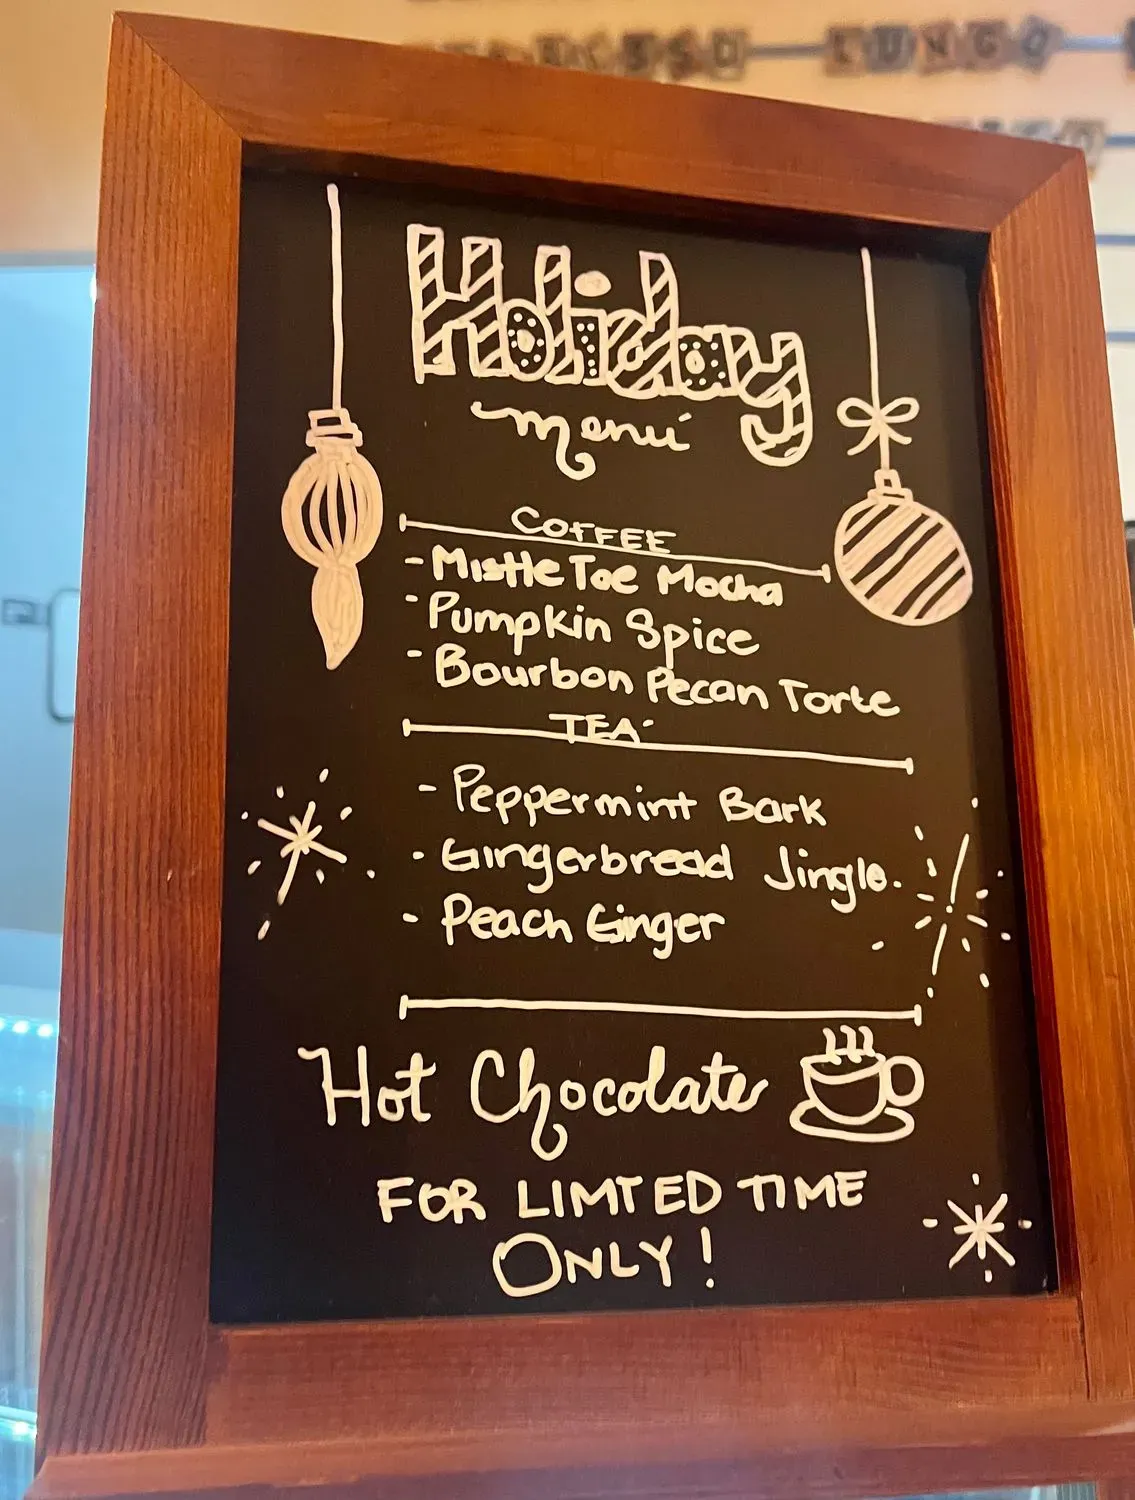 LUNGO
Holiday
menu
COFFEE
- MistleToe Mocha
- Pumpkin Spice
- Bourbon Pecan Torte
TEA
- Peppermint Bark
- Gingerbread Jingle.
- Peach Ginger
Hot Chocolate
FOR LIMTED TIME
ONLY!